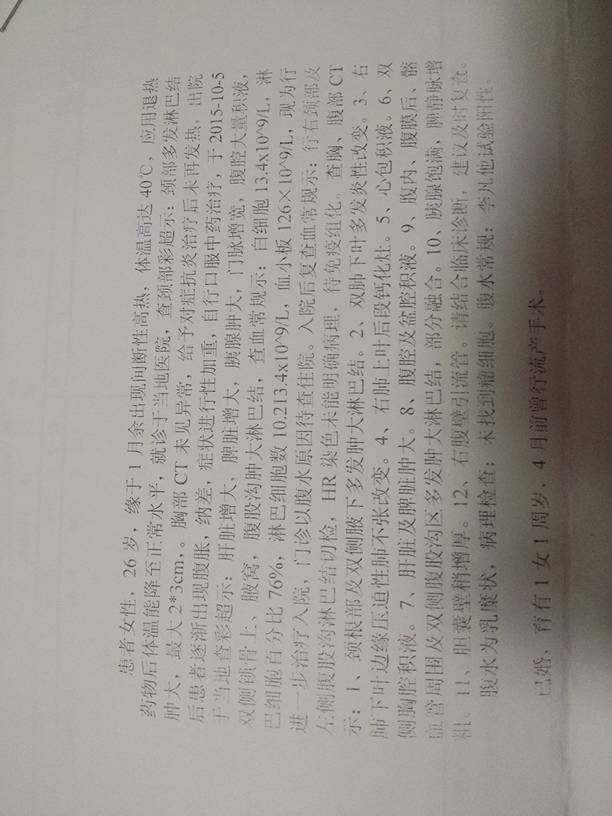 患者女性，26 岁，缘于 1 月余出现间断性高热，体温高达 40℃，应用退热
药物后体温能降至正常水平，就诊于当地医院，查颈部彩超示：颈部多发淋巴结
肿大，最大 2*3cm，。胸部 CT 未见异常，给予对症抗炎治疗后未再发热，出院
后患者逐渐出现腹胀，纳差，症状进行性加重，自行口服中药治疗，于 2015-10-5
于当地查彩超示：肝脏增大，脾脏增大，胰腺肿大，门脉增宽，腹腔大量积液，
双侧锁骨上、腋窝，腹股沟肿大淋巴结，查血常规示：白细胞 13.4x10^9/L，淋
巴细胞百分比 76%，淋巴细胞数 10.213.4x10^9/L，血小板 126×10^9/L，现为行
进一步治疗入院，门诊以腹水原因待查住院。入院后复查血常规示：行右颈部及
左侧腹股沟淋巴结切检，HR 染色未能明确病理，待免疫组化。查胸、腹部 CT
示：1、颈根部及双侧腋下多发肿大淋巴结。2、双肺下叶多发炎性改变。3、右
肺下叶边缘压迫性肺不张改变。4、右肺上叶后段钙化灶。5、心包积液。6、双
侧胸腔积液。7、肝脏及脾脏肿大。8、腹腔及盆腔积液。9、腹内、腹膜后、髂
血管周围及双侧腹股沟区多发肿大淋巴结，部分融合。10、胰腺饱满，脾静脉增
粗。11、胆囊壁稍增厚。12、右腹壁引流管。请结合临床诊断，建议及时复查。
腹水为乳糜状，病理检查：未找到瘤细胞。腹水常规：李凡他试验阳性。
已婚，育有 1 女 1 周岁，4 月前曾行流产手术。